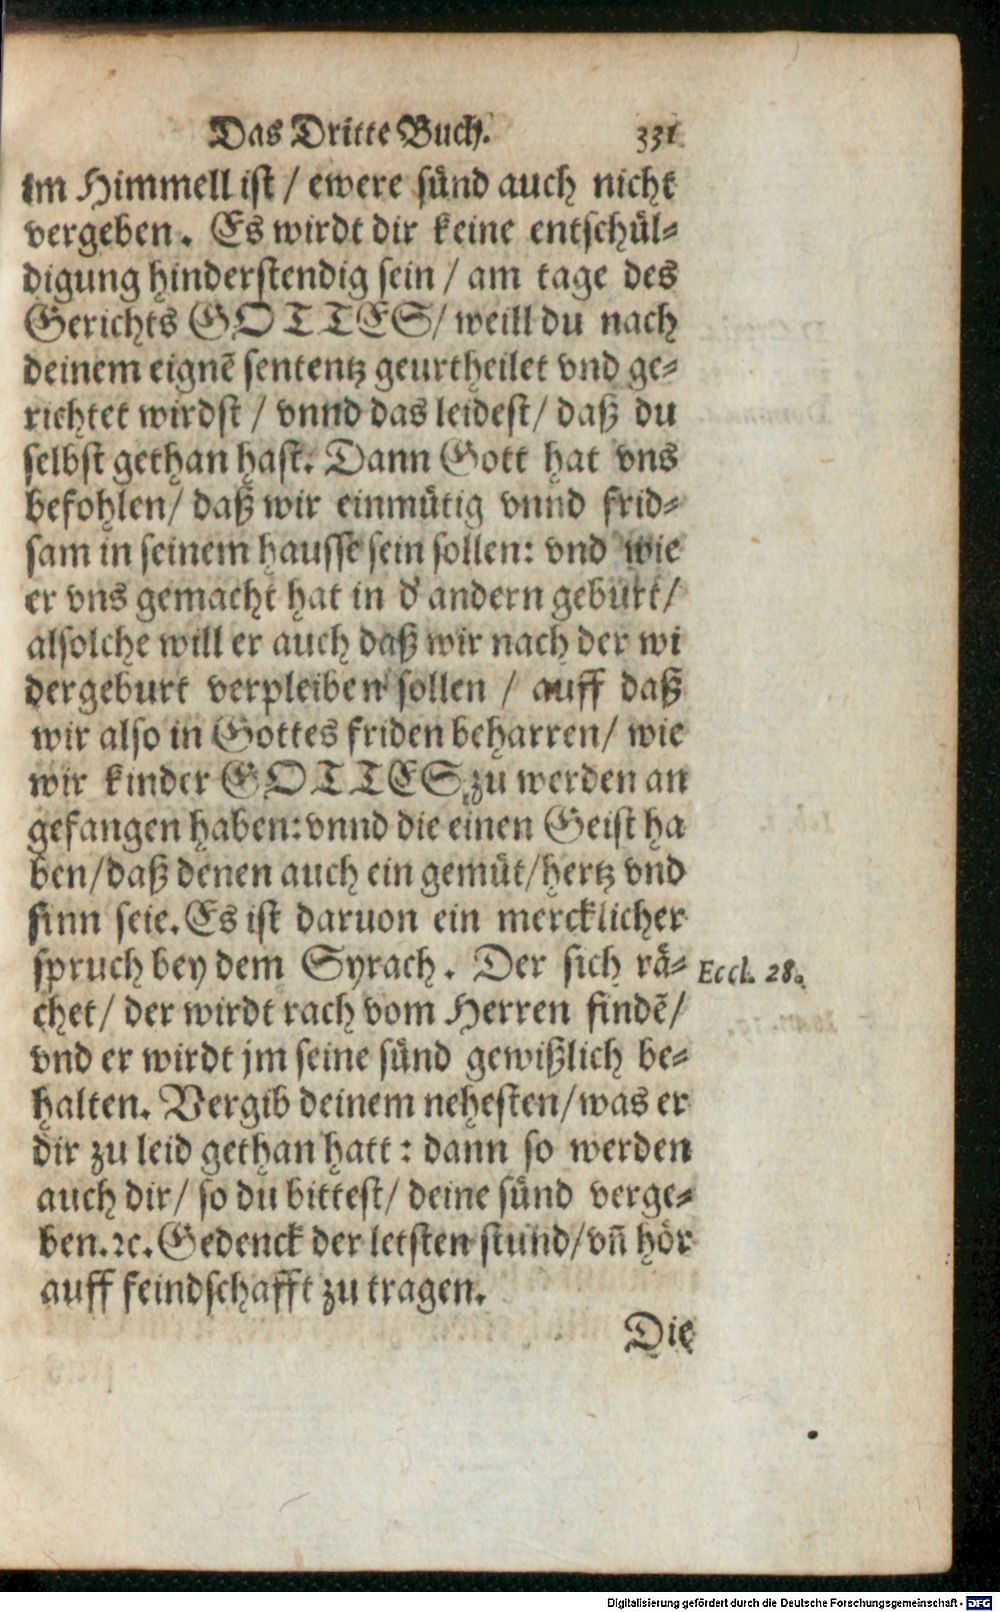 Das Dritte Buch. 331
im Himmell ist / ewere sünd auch nicht
vergeben. Es wirdt dir keine entschül-
digung hinderstendig sein / am tage des
Gerichts GOTTES/ weill du nach
deinem eignē sententz geurtheilet vnd ge-
richtet wirdst / vnnd das leidest/ daß du
selbst gethan hast. Dann Gott hat vns
befohlen/ daß wir einmütig vnnd frid-
sam in seinem hausse sein sollen: vnd wie
er vns gemacht hat in d' andern geburt/
alsolche will er auch daß wir nach der wi
dergeburt verpleiben sollen / auff daß
wir also in Gottes friden beharren/ wie
wir kinder GOTTES zu werden an
gefangen haben: vnnd die einen Geist ha
ben/ daß denen auch ein gemüt/ hertz vnd
sinn seie. Es ist daruon ein mercklicher
spruch bey dem Syrach. Der sich rä- Eccl. 28.
chet/ der wirdt rach vom Herren findē/
vnd er wirdt jm seine sünd gewißlich be-
halten. Vergib deinem nehesten/ was er
dir zu leid gethan hatt: dann so werden
auch dir/ so du bittest/ deine sünd verge-
ben. ꝛc. Gedenck der letsten stund/ vn̄ hör
auff feindschafft zu tragen.
Die
Digitalisierung gefördert durch die Deutsche Forschungsgemeinschaft - DFG